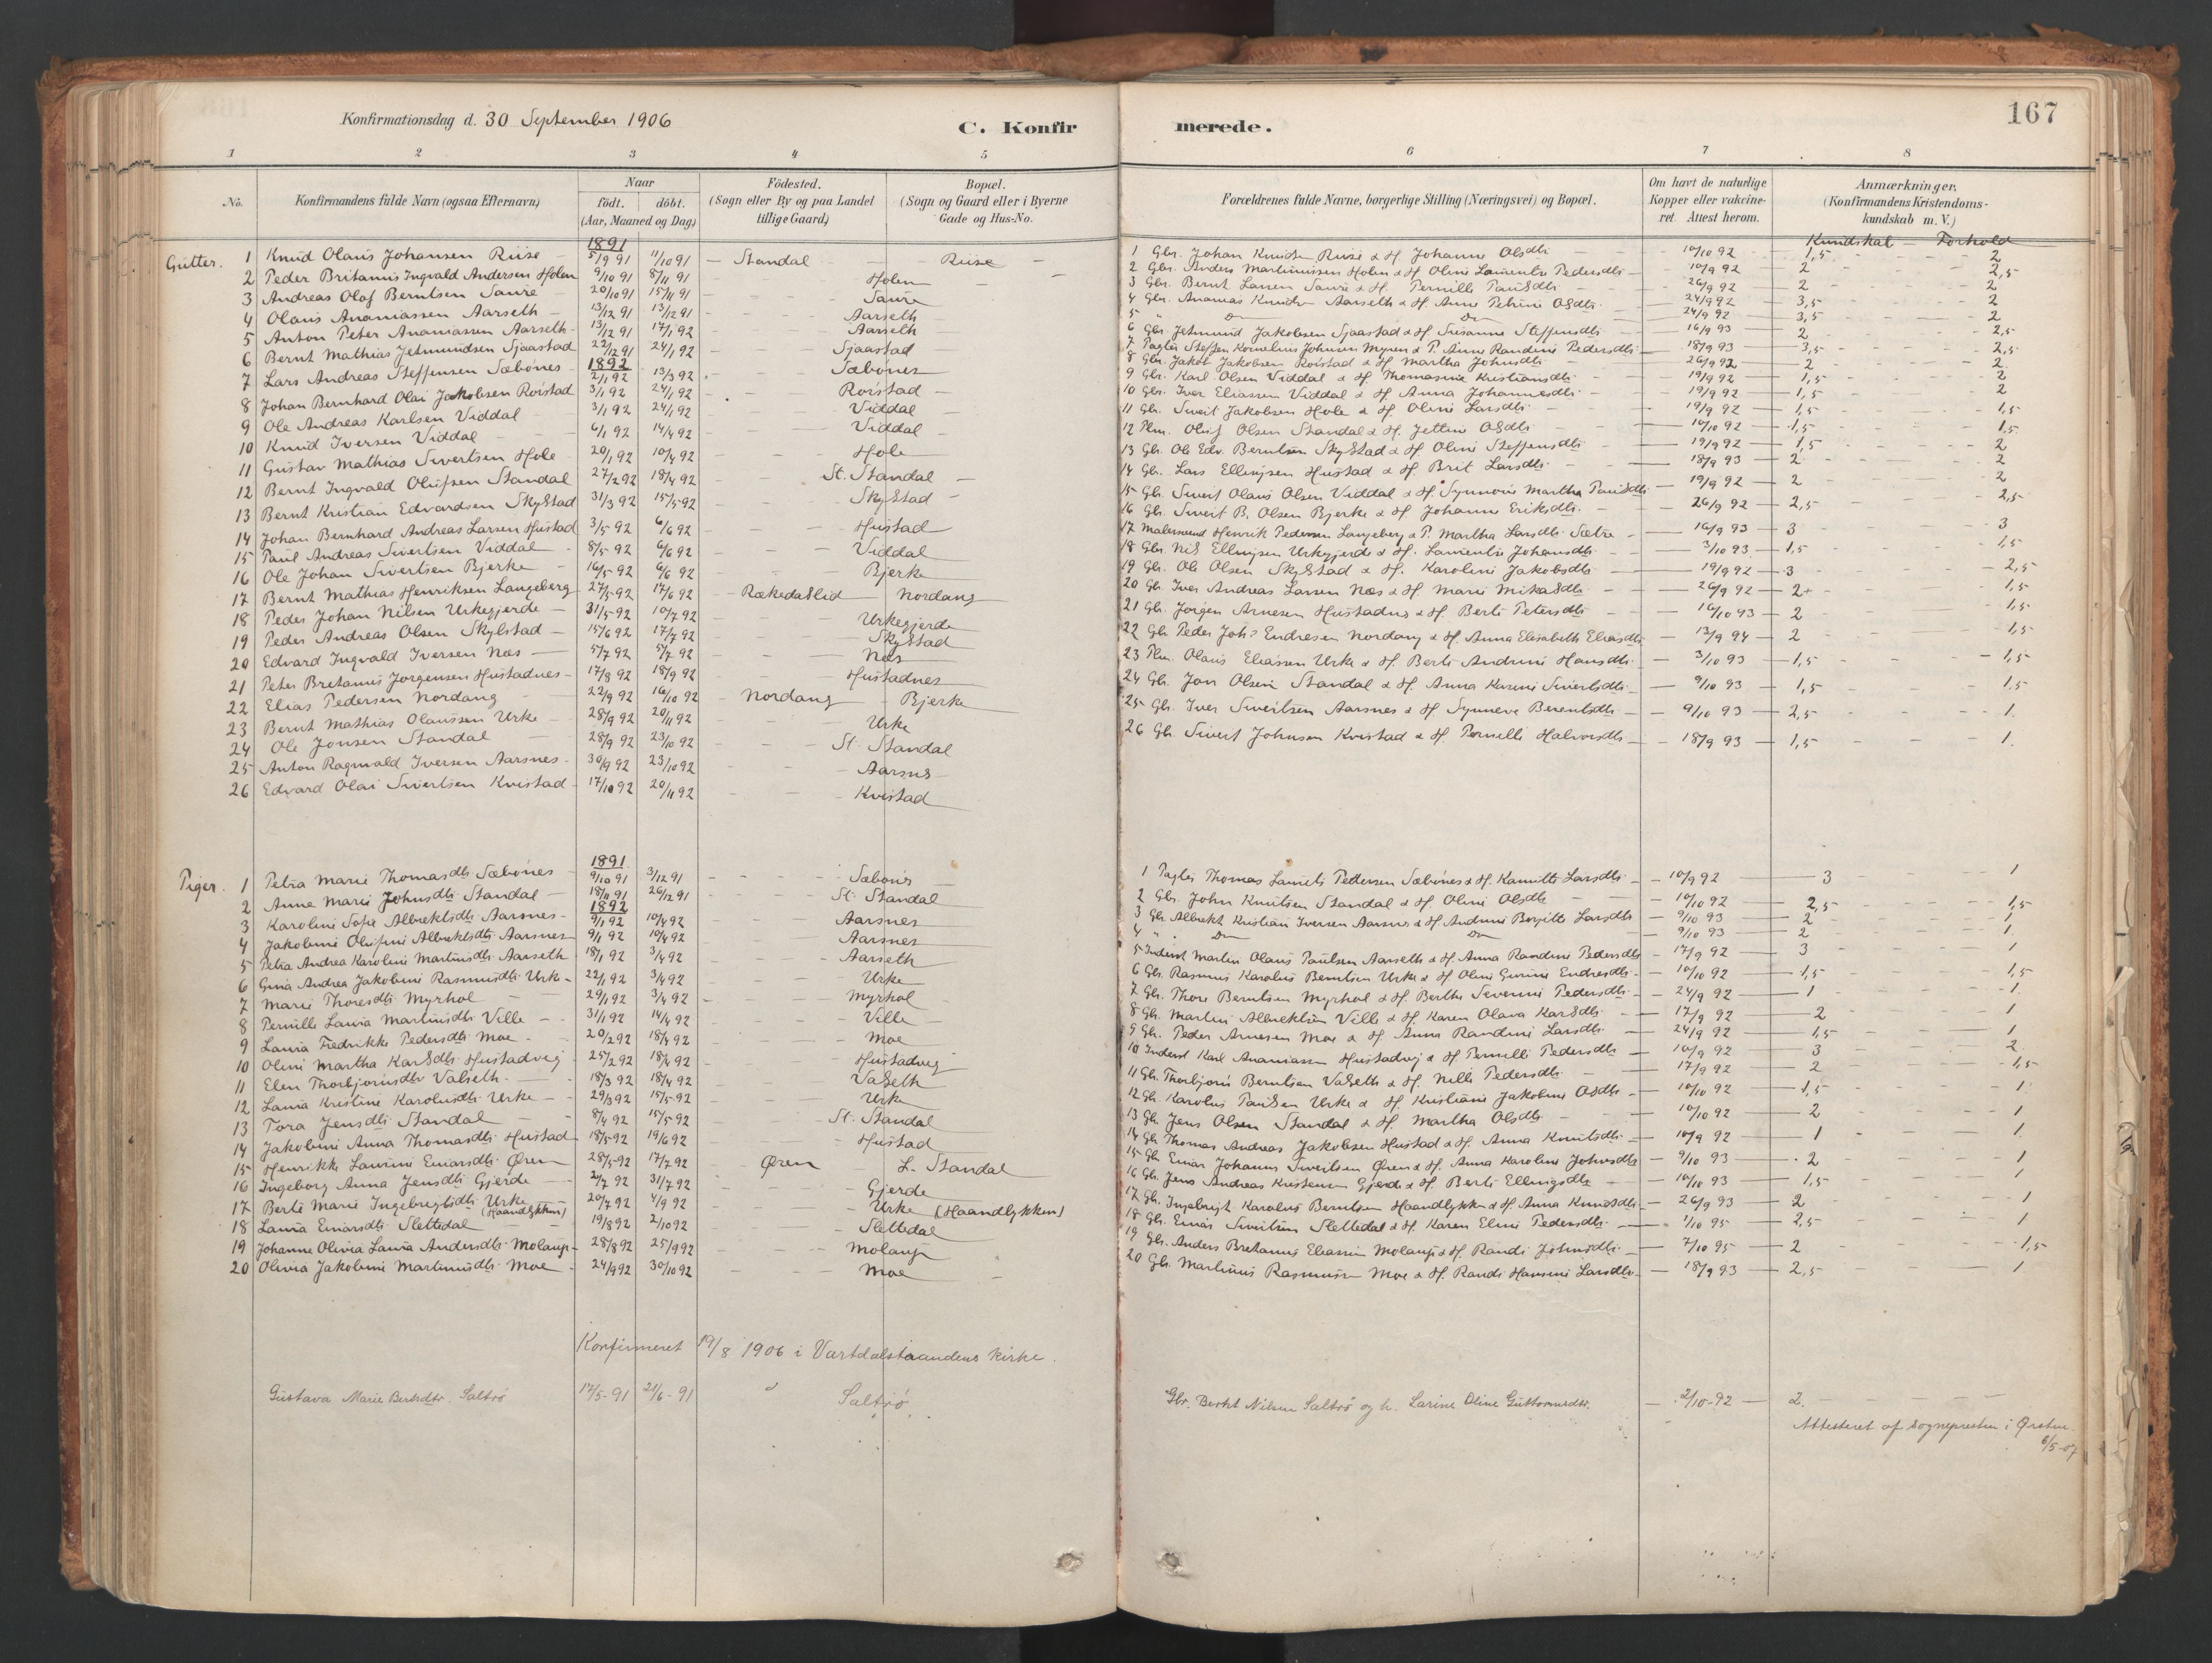 Konfirmationsdag d. 30 September 1906
C. Konfir
1 2 3 4 5
No.
Konfirmandens fulde Navn (ogsaa Efternavn)
Naar
födt. döbt.
(Aar, Maaned og Dag)
Födested.
(Sogn eller By og paa Landet
tillige Gaard)
Bopæl.
(Sogn og Gaard eller i Byerne
Gade og Hus-No.
Gutter.
1891
1 Knud Olaus Johansen Riise 5/9 91 11/10 91 - Standal - Riise
2 Peder Britanus Ingvald Andersen Holen 9/10 91 8/11 91 Holen
3 Andreas Olaf Berntsen Saure 20/10 91 15/11 91 Saure
4 Olaus Ananiassen Aarseth 13/12 91 13/12 91 Aarseth
5 Anton Peter Ananiassen Aarseth 13/12 91 17/1 92 Aarseth
6 Bernt Mathias Jetmundsen Sjaastad 22/12 91 24/1 92 Sjaastad
1892
7 Lars Andreas Steffensen Sæbönes 2/1 92 13/3 92 Sæbönes
8 Johan Bernhard Olai Jakobsen Roistad 3/1 92 24/1 92 Roistad
9 Ole Andreas Karlsen Viddal 3/1 92 24/1 92 Viddal
10 Knud Iversen Viddal 6/1 92 14/4 92 Viddal
11 Gustav Mathias Sivertsen Hole 20/1 92 10/4 92 Hole
12 Bernt Ingvald Olufsen Standal 27/2 92 18/4 92 St. Standal
13 Bernt Kristian Edvardsen Skylstad 31/3 92 15/5-92 Skylstad
14 Johan Bernhard Andreas Larsen Hustad 3/5 92 6/6 92 Hustad
15 Paul Andreas Sivertsen Viddal 8/5- 92 6/6 92 Viddal
16 Ole Johan Sivertsen Bjerke 16/5- 92 6/6 92 Bjerke
17 Bernt Mathias Henriksen Langeberg 27/5-92 17/6 92 Rekedalslid Nordang
18 Peder Johan Nilsen Urkegjerde 31/5-92 10/7 92 Urkegjerde
19 Peder Andreas Olsen Skylstad 15/6 92 17/7 92 Skylstad
20 Edvard Ingvald Iversen Næs 5/7 92 5/7 92 Næs
21 Peter Bretanus Jorgensen Hustadnes 17/8 92 18/9 92 Hustadnes
22 Elias Pedersen Nordang 22/9 92 16/10 92 Nordang Bjerke
23 Bernt Mathias Olaussen Urke 28/9 92 20/11 92 Urke
24 Ole Jonsen Standal 28/9 92 23/10 92 St. Standal
25 Anton Ragnvald Iversen Aarsnes 30/9 92 23/10 92 Aarsnes
26 Edvard Olai Sivertsen Kvistad 17/10 92 20/11 92 Kvistad
Piger.
1891
1 Petra Marie Thomasdtr Sæbönes 9/10 91 3/12 91 Sæbönes
2 Anne Marie Johnsdtr Standal 18/11 91 26/12 91 St. Standal
1892
3 Karoline Sofie Albrektsdtr Aarsnes 9/1 92 10/4 92 Aarsnes
4 Jakobine Olufine Albrektsdtr Aarsnes 9/1 92 10/4 92 Aarsnes
5 Petra Andrea Karoline Martinsdtr Aarseth 18/1 92 3/4 92 Aarseth
6 Gina Andrea Jakobine Rasmusdtr Urke 22/1 92 3/4 92 Urke
7 Marie Thoresdtr Myrhol 29/1 92 3/4 92 Myrhol
8 Pernille Laura Martinsdtr Ville 31/1 92 14/4 92 Ville
9 Laura Fredrikke Pedersdtr Moe 20/2 92 18/4 92 Moe
10 Oline Martha Karlsdtr Hustadvig 25/2 92 18/4 92 Hustadvig
11 Elen Thorbjornsdtr Valseth 18/3 92 18/4 92 Valseth
12 Laura Kristine Karolusdtr Urke 29/3 92 15/5-92 Urke
13 Tora Jensdtr Standal 8/4 92 15/5-92 St. Standal
14 Jakobine Anna Thomasdtr Hustad 18/5-92 19/6 92 Hustad
15 Henrikke Laurine Einarsdtr Øren 28/5-92 17/7 92 Øren L. Standal
16 Ingeborg Anna Jensdtr Gjerde 2/7 92 31/7 92 Gjerde
17 Berte Marie Ingebrigtsdtr Urke (Haandlykken) 20/7 92 4/9 92 Urke (Haandlykken)
18 Laura Einarsdtr Slettedal 19/8 92 2/10 92 Slettedal
19 Johanne Olivia Laura Andersdtr Molaup 28/8 92 25/9 92 Molaup
20 Olivia Jakobine Martinusdtr Moe 24/9 92 30/10 92 Moe
Konfirmeret 19/8 1906 i Vartdalstrandens kirke.
Gustava Marie Berntsdtr. Saltrö 17/5-91 21/6-91 Saltrö
merede.
167
6 7 8
Forældrenes fulde Navne, borgerlige Stilling (Næringsvei) og Bopæl.
Om havt de naturlige
Kopper eller vakcine-
ret. Attest herom.
Anmærkninger.
(Konfirmandens Kristendoms-
kundskab m. V.)
Kundskab - Forhold
1 Gbr. Johan Knudsen Riise & H. Johanne Olsdtr 10/10 92 1,5 2
2 Gbr. Anders Martinussen Holen & H. Oline Laurentze Pedersdtr 10/9 92 2 2,5
3 Gbr. Bernt Larsen Saure & H. Pernille Paulsdtr 26/9 92 2 2
4 Gbr. Ananias Knudsen Aarseth & H. Anne Petrine Olsdtr 24/9 92 3,5 2
5 " Do Do 24/9 92 3,5 2
6 Gbr. Jetmund Jakobsen Sjaastad & H. Susanne Steffensdtr 16/9 93 2 2,5
7 Pagter Steffen Kornelius Johnsen Myren & P. Anne Randine Pedersdtr 18/9 93 3,5 2,5
8 Gbr. Jakob Jakobsen Roistad & H. Martha Johnsdtr 26/9 92 2 2
9 Gbr. Karl Olsen Viddal & H. Thomasine Kristiansdtr 19/9 92 1,5 2
10 Gbr. Iver Eliassen Viddal & H. Anna Johannesdtr 19/9 92 1,5 2
11 Gbr. Sivert Jakobsen Hole & H. Oline Larsdtr 19/9 92 1,5 1,5
12 Plm. Oluf Olsen Standal & H. Jettine Olsdtr 10/10 92 1,5 1,5
13 Gbr. Ole Edv. Berntsen Skylstad & H. Oline Steffensdtr 19/9 92 1,5 2
14 Gbr. Lars Ellingsen Hustad & H. Brit Larsdtr 18/9 93 2 2
15 Gbr. Sivert Olaus Olsen Viddal & H. Synnove Martha Paulsdtr 19/9 92 2 2
16 Gbr. Sivert B. Olsen Bjerke & H. Johanne Eriksdtr 26/9 92 2,5 2,5
17 Malersvend Henrik Pedersen Langeberg & P. Martha Larsdtr Sætre 16/9 93 3 3
18 Gbr. Nils Ellingsen Urkegjerde & H. Laurentze Johansdtr 3/10 93 1,5 1,5
19 Gbr. Ole Olsen Skylstad & H. Karoline Jakobsdtr 19/9 92 3 2,5
20 Gbr. Iver Andreas Larsen Næs & H. Marie Mikalsdtr 26/9 92 2+ 1,5
21 Gbr. Jörgen Arnesen Hustadnes & H. Berte Petersdtr 16/10 93 2 1,5
22 Gbr. Peder Johs Endresen Nordang & H. Anna Elisabeth Eliasdtr 13/9 94 2 1,5
23 Plm. Olaus Eliassen Urke & H. Berte Andrine Hansdtr 3/10 93 1,5 1,5
24 Gbr. Jon Olsen Standal & H. Anna Karine Sivertsdtr 9/10 93 1,5 1,5
25 Gbr. Iver Sivertsen Aarsnes & H. Synneve Berentsdtr 9/10 93 2,5 1
26 Gbr. Sivert Johnsen Kvistad & H. Pernille Halvorsdtr 18/9 93 1,5 1.
1 Pagter Thomas Laurits Pettersen Sæbönes & H. Kamille Larsdtr 10/9 92 3 1
2 Gbr. John Knutsen Standal & H. Oline Olsdtr 10/10 92 2,5 1,5
3 Gbr. Albrekt Kristian Iversen Aarsnes & H. Andrine Birgitte Larsdtr 9/10 93 2 1
4 " Do Do 9/10 93 2 1
5 Inderst Martin Olaus Paulsen Aarseth & H. Anna Randine Pedersdtr 17/9 92 3 1
6 Gbr. Rasmus Karolus Berntsen Urke & H. Oline Gurine Endresdtr 10/10 92 1,5 1,5
7 Gbr. Thore Berntsen Myrhol & H. Berthe Severine Pedersdtr 24/9 92 1 1
8 Gbr. Martin Albrektsen Ville & H. Karen Olava Karlsdtr 17/9 92 2 1
9 Gbr. Peder Arnesen Moe & H. Anna Randine Larsdtr 24/9 92 1,5 1
10 Inderst Karl Ananiassen Hustadvig & H. Pernille Pedersdtr 10/9 92 3 2
11 Gbr. Thorbjörn Berntsen Valseth & H. Nille Pedersdtr 17/9 92 2 1,5
12 Gbr. Karolus Paulsen Urke & H. Kristiane Jakobine Olsdtr 10/10 92 1,5 1
13 Gbr. Jens Olsen Standal & H. Martha Olsdtr 10/10 92 2 1
14 Gbr. Thomas Andreas Jakobsen Hustad & H. Anna Knutsdtr 10/9 92 1 1
15 Gbr. Einar Johannes Sivertsen Øren & H. Anna Karoline Johnsdtr 9/10 93 2 1
16 Gbr. Jens Andreas Kristensen Gjerde & H. Berte Ellingsdtr 10/10 93 1,5 1
17 Gbr. Ingebrigt Karolus Berntsen Haandlykken & H. Anna Knudsdtr 26/9 93 2 1
18 Gbr. Einar Sivertsen Slettedal & H. Karen Eline Pedersdtr 1/10 95 2,5 1
19 Gbr. Anders Bretanus Eliassen Molaup & H. Randi Johnsdtr 7/10 95 2 1,5
20 Gbr. Martinus Rasmussen Moe & H. Randi Hansine Larsdtr 18/9 93 2,5 1
Gbr. Bernt Nilsen Saltrö og h. Larine Oline Guttormsdtr. 2/10-92 2.
Attesteret af sognepresten i Ørsten
6/5-07